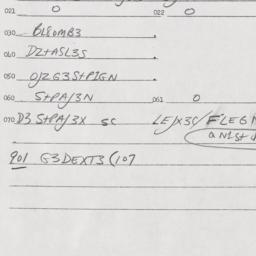 021 0 022 0
030 BLEOMB3
040 DZ+ASL3S
050 O/ZG3S+PIGN
060 S+PA/3N 061 0
070 D3 S+PA/3X SC LE/X3S/FLEGM
901 G3DEXT3(107